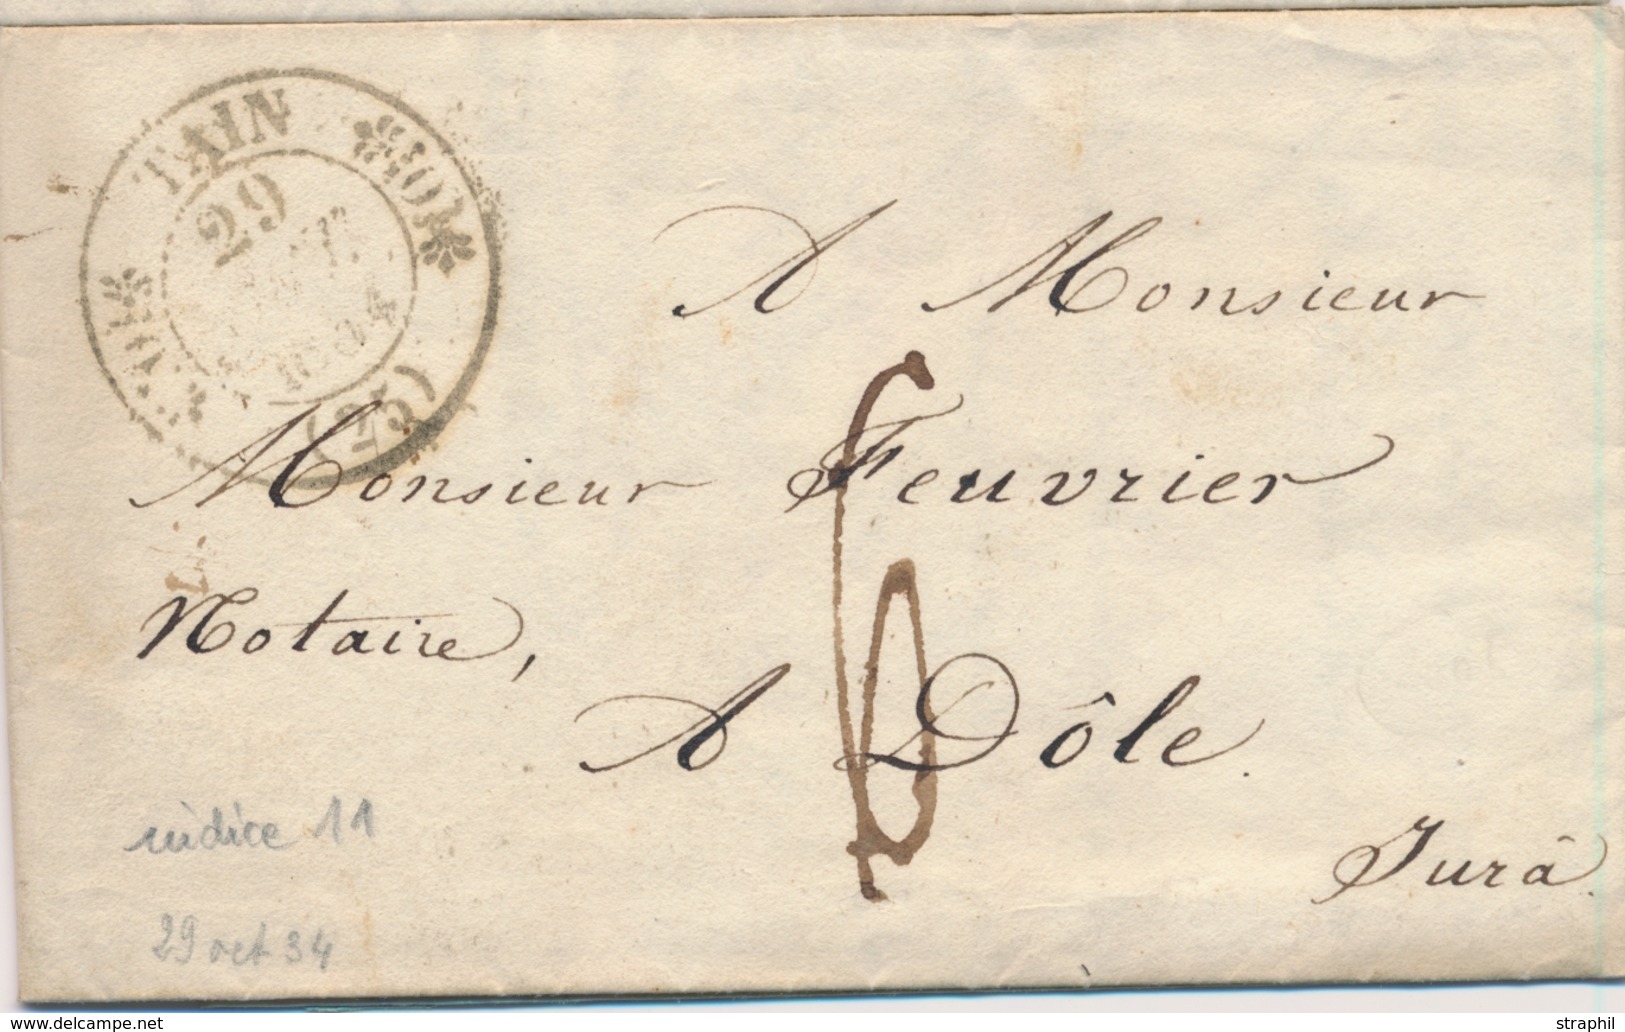 TAIN
29
(25)
A Monsieur
Monsieur Feuvrier
Notaire,
A Dôle.
Jurâ
6
indice 11
29 oct 34
delcampe.net
straphil